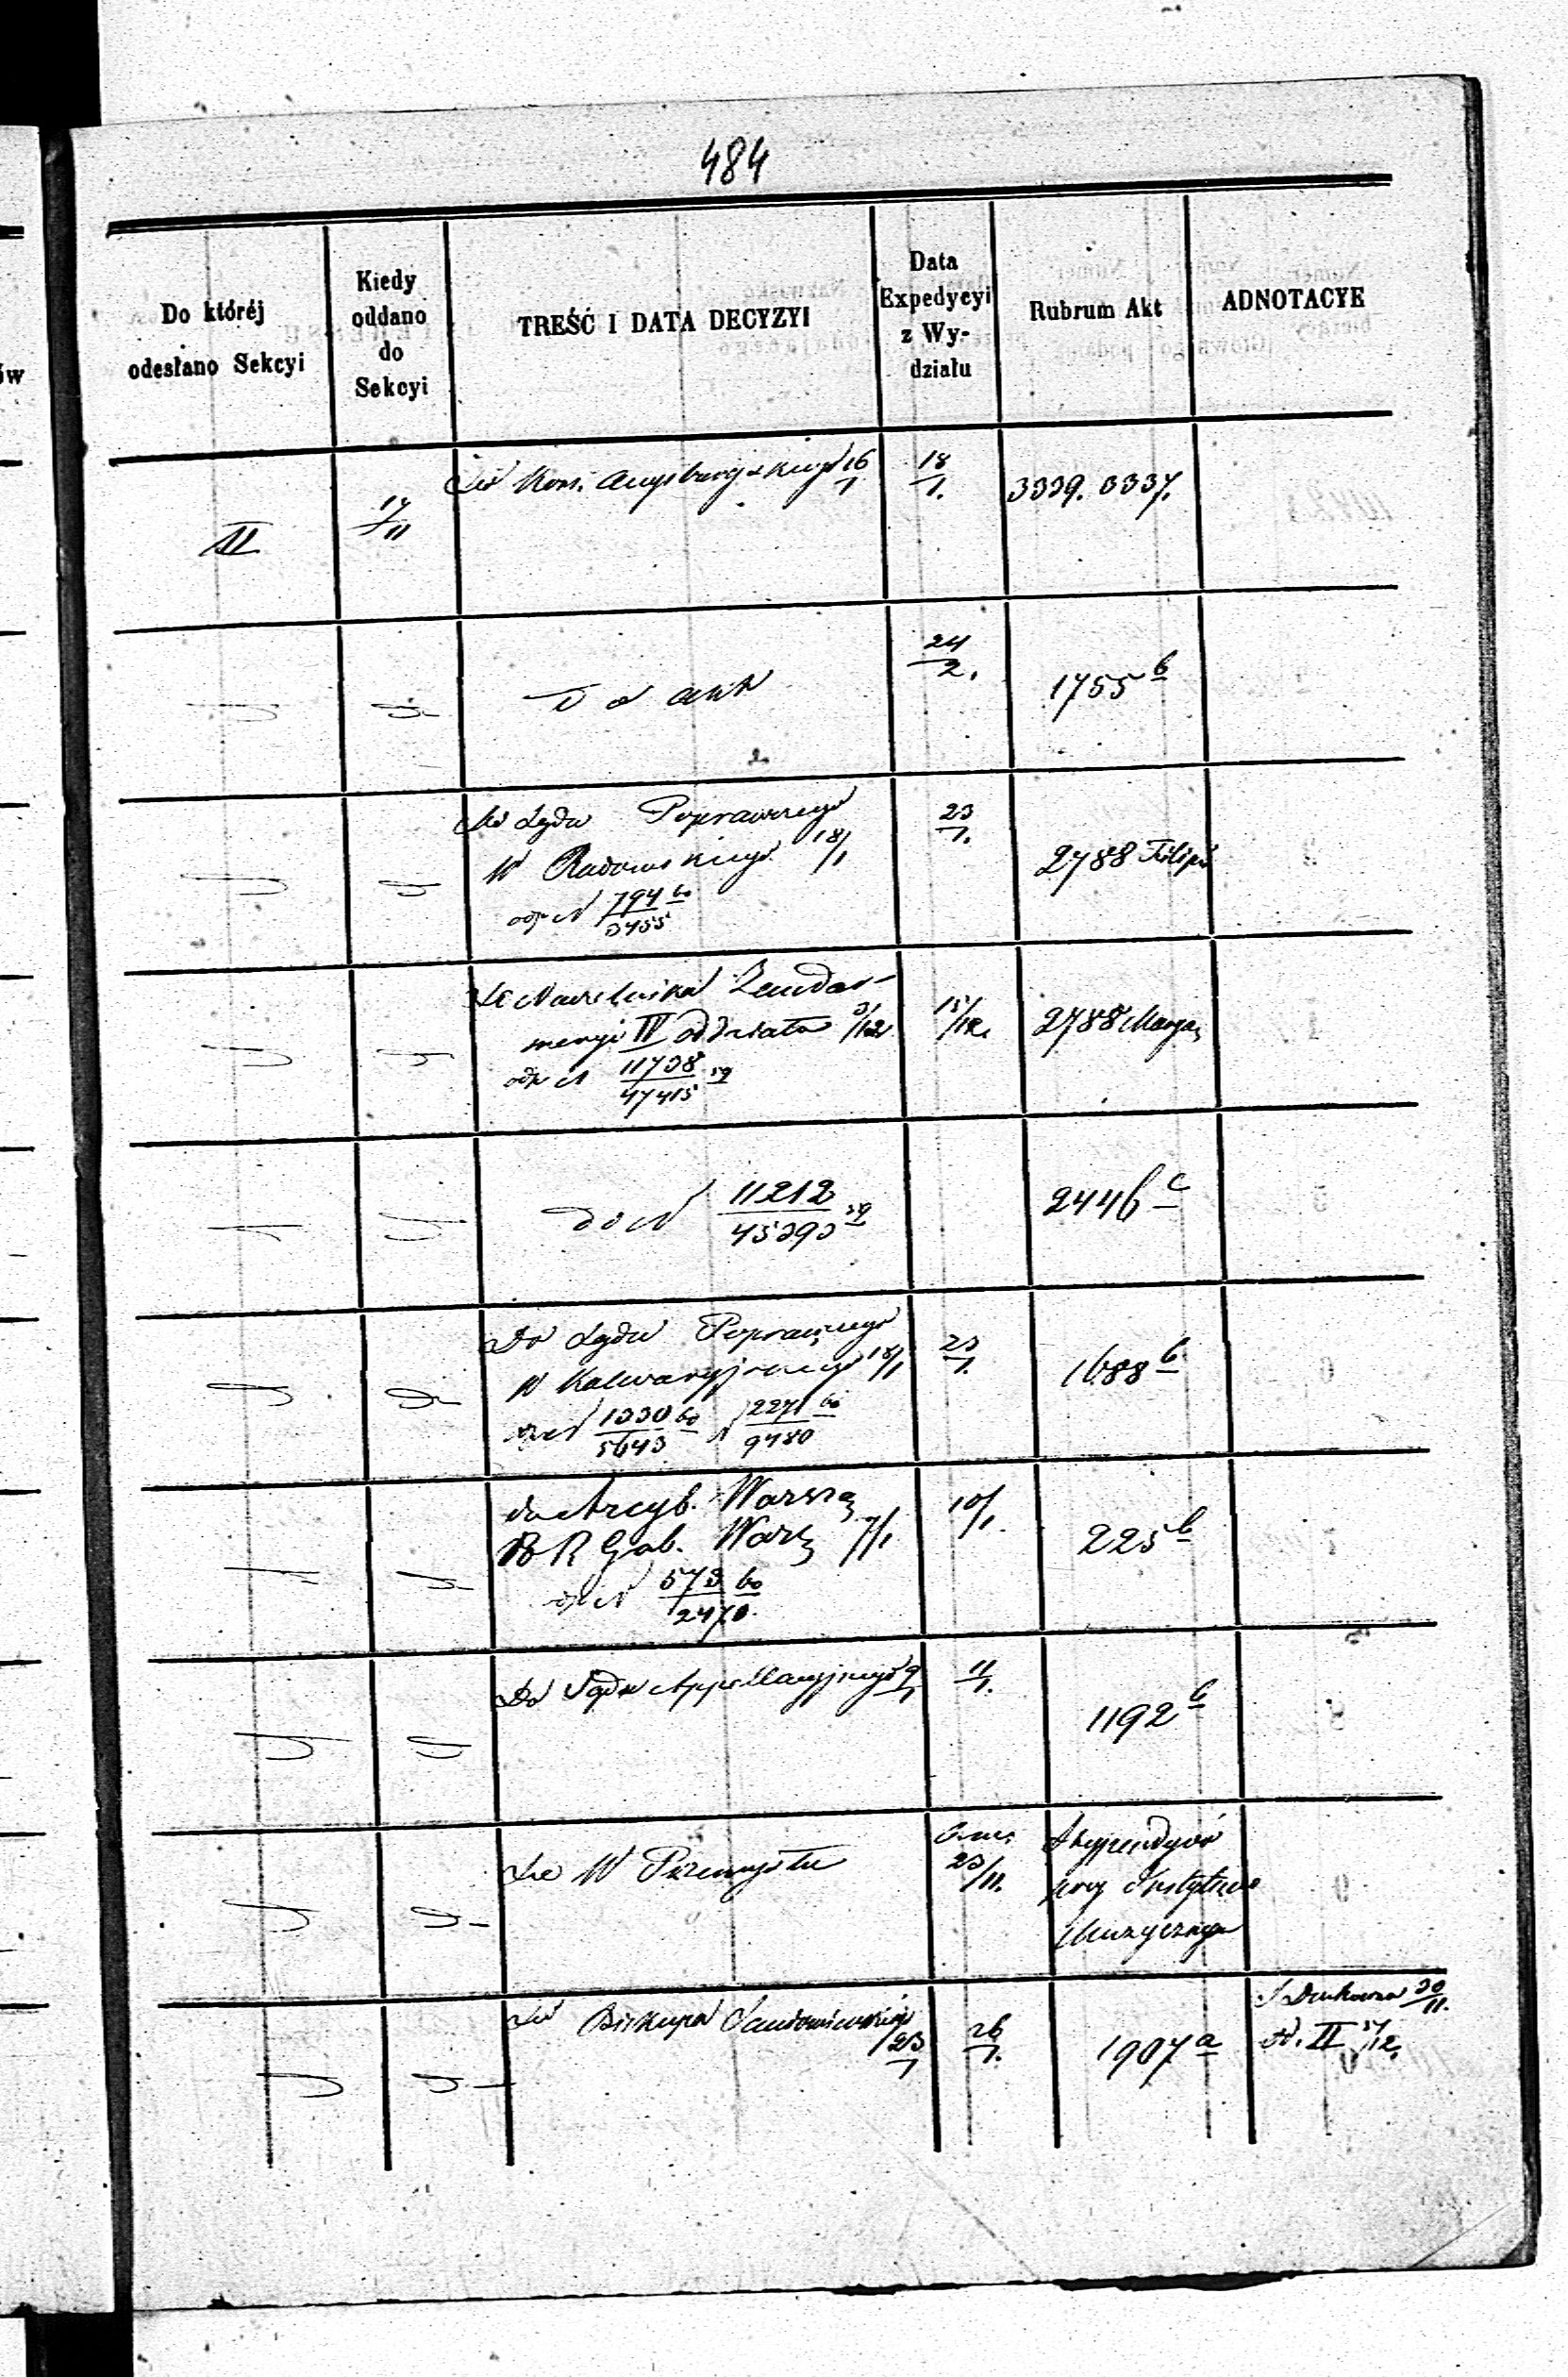 484
Do któréj
odesłano Sekcyi
Kiedy
oddano
do
Sekcyi
TREŚĆ I DATA DECYZYI
Data
Expedycyi
z Wy-
działu
Rubrum Akt
ADNOTACYE
II
17/11
Do Kons. Augsburgskiego 16/1
18/1.
3339. 3337.
Do akt
24/2.
1755 b
Do Sądu Poprawczego
W Radomskiego 18/1
odp N 794/3455 60
23/1.
2788 Filipó
Do Naczelnika Żandar-
meryi IV oddziału 3/12
odp N 11738/47415 59
15/12.
2788 Marya
do N 11212/45393 59
2446 c
Do Sądu Poprawczego
W Kalwaryjskiego 18/1
odp N 1330/5643 60 N 2271/9480 60
23/1.
1688 b
do Arcyb. Warsza
R Gub. Warsz 7/1
odp N 573/2470 60
10/1.
225 b
Do Sądu Appellacyjnego 9/1
11/1.
1192 b
Do W Przemysłu
23/11.
Stypendyów
przy Instytucie
Muzycznym
Do Biskupa Sandomierskiego
23/1
26/1.
1907 a
30/11.
II 17/12.